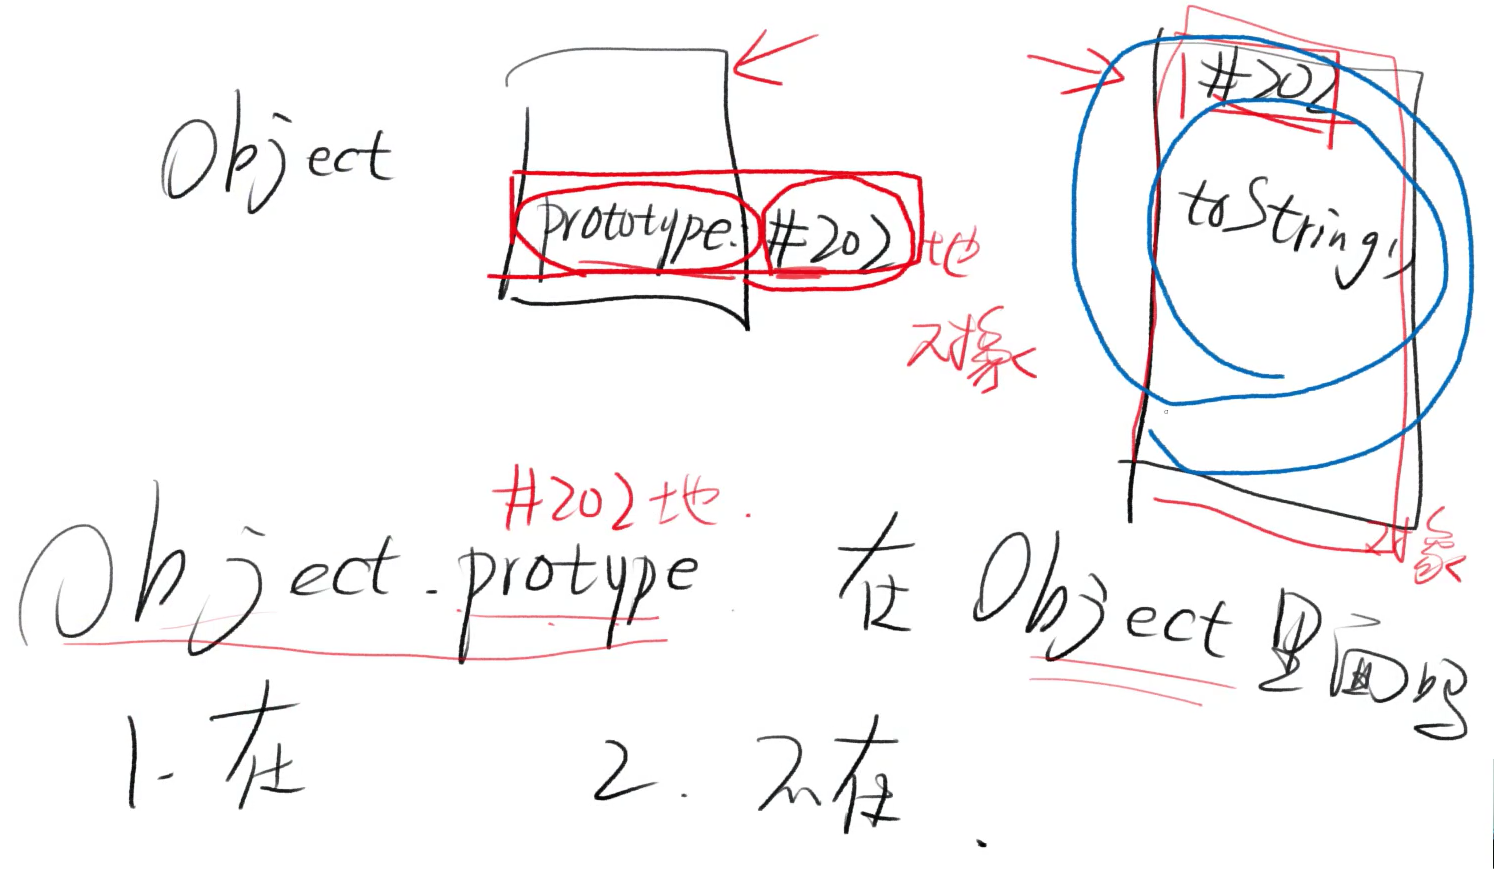 Object
prototype: #202 地
对象
#202
toString,
对象
#202 地.
Object.protype 在 Object 里面吗
1. 在 2. 不在.